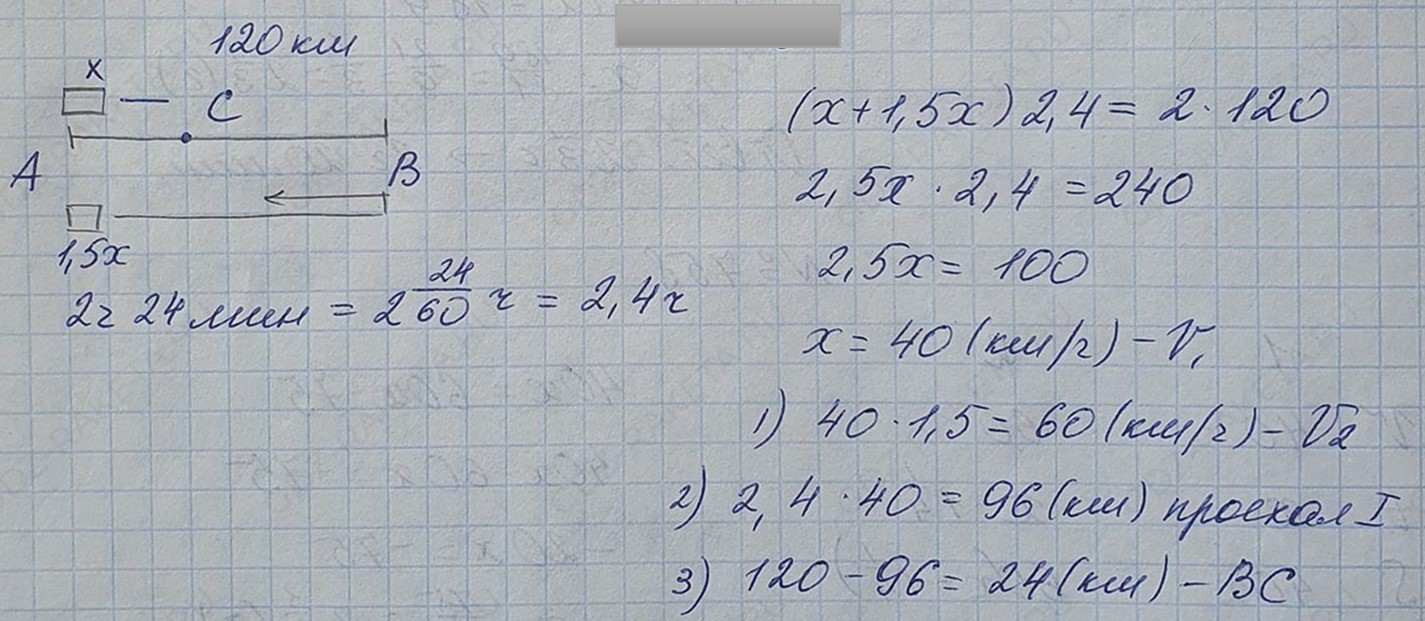 120 км
x
C
A
B
1,5x
2ч 24 мин = 2 24/60 ч = 2,4ч
(x+1,5x) 2,4 = 2·120
2,5x · 2,4 = 240
2,5x = 100
x = 40 (км/ч) – V₁
1) 40 · 1,5 = 60 (км/ч) – V₂
2) 2,4 · 40 = 96 (км) проехал I
3) 120 – 96 = 24 (км) – BC